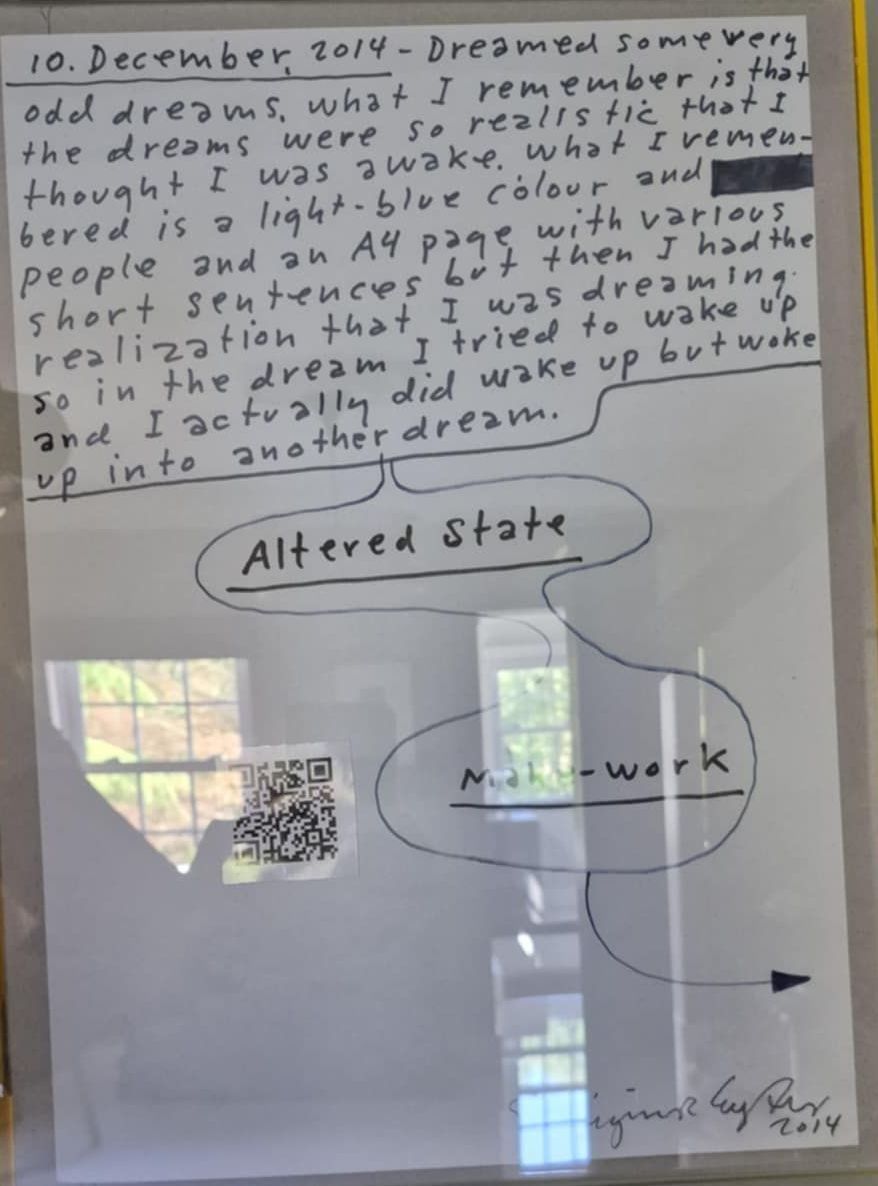 10. December, 2014 - Dreamed some very
odd dreams. what I remember is that
the dreams were so realistic that I
thought I was awake. what I remem-
bered is a light-blue colour and
people and an A4 page with various
short sentences but then I had the
realization that I was dreaming.
so in the dream I tried to wake up
and I actually did wake up but woke
up into another dream.
Altered State
-work
2014